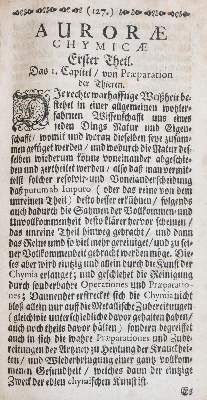 (127.)
AURORÆ
CHYMICÆ
Erster Theil.
Das 1. Capitel / von Præparation
der Thieren.
Die rechte warhafftige Weißheit be-
stehet in einer allgemeinen wolver-
fahrnen Wissenschafft uns eines
jeden Dings Natur und Eigen-
schafft / womit und woran dieselben seye zusam-
men gefüget werden / und wodurch die Natur des-
selben wiederum könne voneinander abgeschie-
den und zertheilet werden / also daß man vermit-
telst solcher resolvir- und Voneinanderscheidung
daß purum ab Impuro ( oder das reine von dem
unreinen Theil ) desto besser erkühnen / folgends
auch dadurch die Saamen der Vollkommen- und
Unvollkommenheit desto klärer hervor scheinen /
das unreine Theil hinweg gebracht / und dann
das Reine umb so viel mehr gereiniget / und zu sei-
ner Vollkommenheit gebracht werden möge. Die-
ses aber wird einzig und allein durch die Kunst der
Chymia erlanget; und geschiehet die Reinigung
durch sonderbahre Operationes und Præparatio-
nes; Dannenher erstrecket sich die Chymia nicht
bloß allein nur auf die Metallische Zubereitungen
( gleichwie unterschiedliche davor gehalten haben /
auch noch theils davor halten ) sondern begreiffet
auch in sich die wahre Præparationes und Zube-
reitungen der Artzney zu Heylung der Kranckhei-
ten / und Wiederbringung einer gantz vollkom-
menen Gesundheit / welches dann der eintzige
Zweck der edlen chymischen Kunst ist.